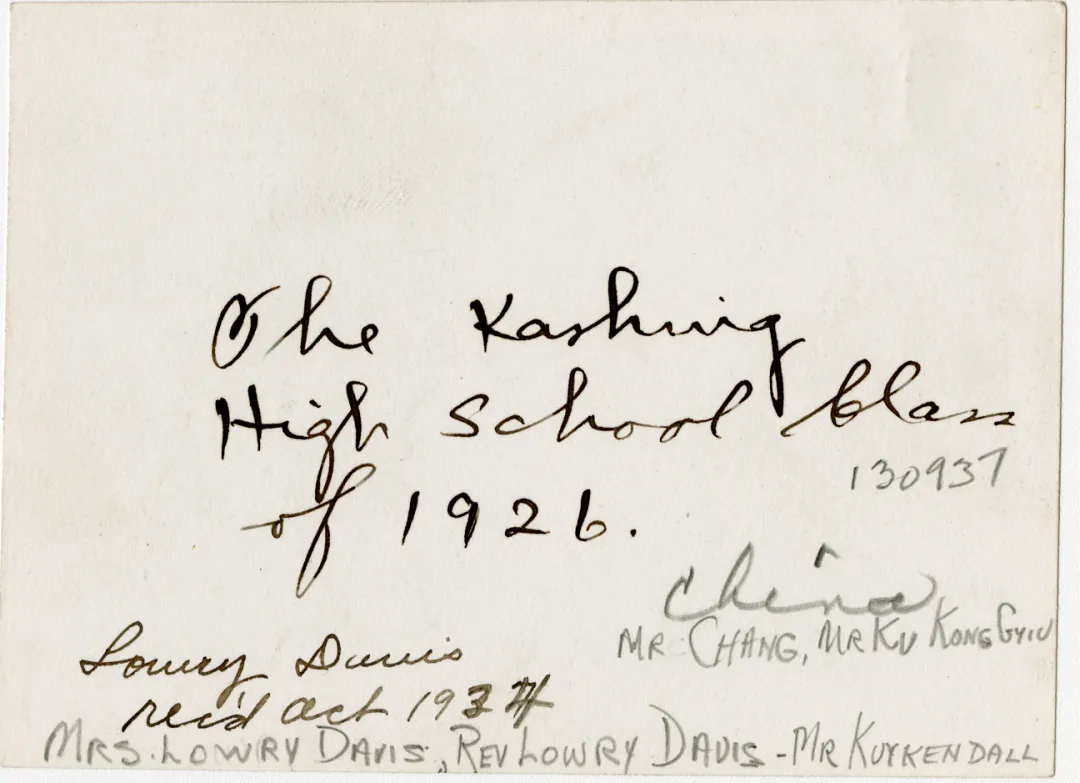 The Kashing
High School Class
of 1926.
130937
China
MR CHANG, MR KU KONG GYIU
Lowry Davis
rec'd Oct 193
MRS. LOWRY DAVIS, REV LOWRY DAVIS - MR KUYKENDALL